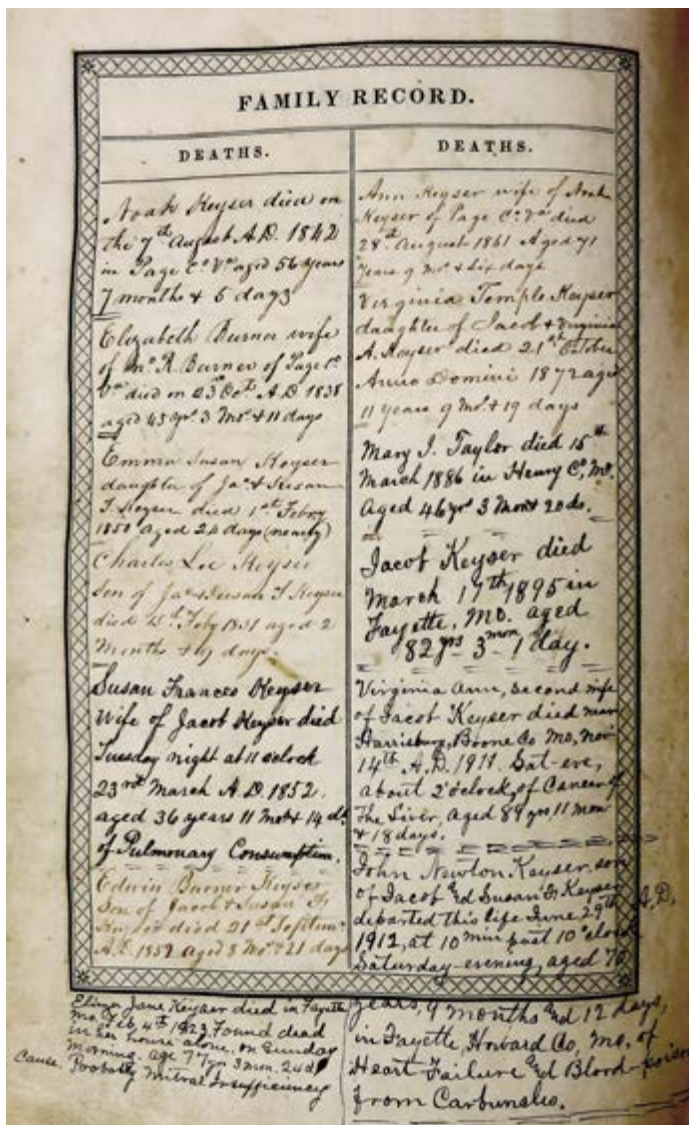 FAMILY RECORD.
DEATHS.
Noah Keyser died on
the 7th August A.D. 1842
in Page Co Va aged 56 years
7 months & 5 days
Elizabeth Burner wife
of R. Burner of Page Co
Va died on 23d Oct A.D. 1838
aged 45 yrs 3 Mos & 11 days
Emma Susan Keyser
daughter of Jas & Susan
F. Keyser died 1st Febry
1850 aged 24 days (nearly)
Charles Lee Keyser
Son of Jas & Susan F Keyser
died 15th Feby 1851 aged 2
Months & 9 days.
Susan Frances Keyser
Wife of Jacob Keyser died
Tuesday night at 11 oclock
23rd March A.D. 1852.
aged 36 years 11 Mos & 14 ds
of Pulmonary Consumption.
Edwin Burner Keyser
Son of Jacob & Susan F.
Keyser died 21st Septem
A.D. 1852 aged 8 Mos & 21 days
Elinor Jane Keyser died in Fayette
Mo. Feb. 4th 1923 Found dead
in her house alone, on Sunday
morning. age 77 yrs 3 mon. 24 d
Cause, Probably Mitral Insufficiency
DEATHS.
Ann Keyser wife of Noah
Keyser of Page Co Va died
28th August 1861 Aged 71
Years 9 Mos & Six days
Virginia Temple Keyser
daughter of Jacob & Virginia
A. Keyser died 21st October
Anno Domini 1872 aged
11 years 9 Mos & 19 days
Mary J. Taylor died 15th
March 1886 in Henry Co, Mo.
Aged 46 yrs 3 Mon & 20 ds.
Jacob Keyser died
March 17th 1895 in
Fayette, Mo. aged
82 yrs 3 mon 1 day.
Virginia Ann, second wife
of Jacob Keyser died near
Harrisburg, Boone Co Mo, Nov
14th A.D. 1911. Sat-eve,
about 2 o'clock, of Cancer of
The Liver, Aged 89 yrs 11 mon
& 18 days.
John Newton Keyser, son
of Jacob and Susan F. Keyser
departed this life June 29th A,D,
1912, at 10 min past 10 o'clock
Saturday-evening, aged 70
years, 9 months and 12 days,
in Fayette, Howard Co, Mo, of
Heart-Failure and Blood-poison
from Carbuncles.